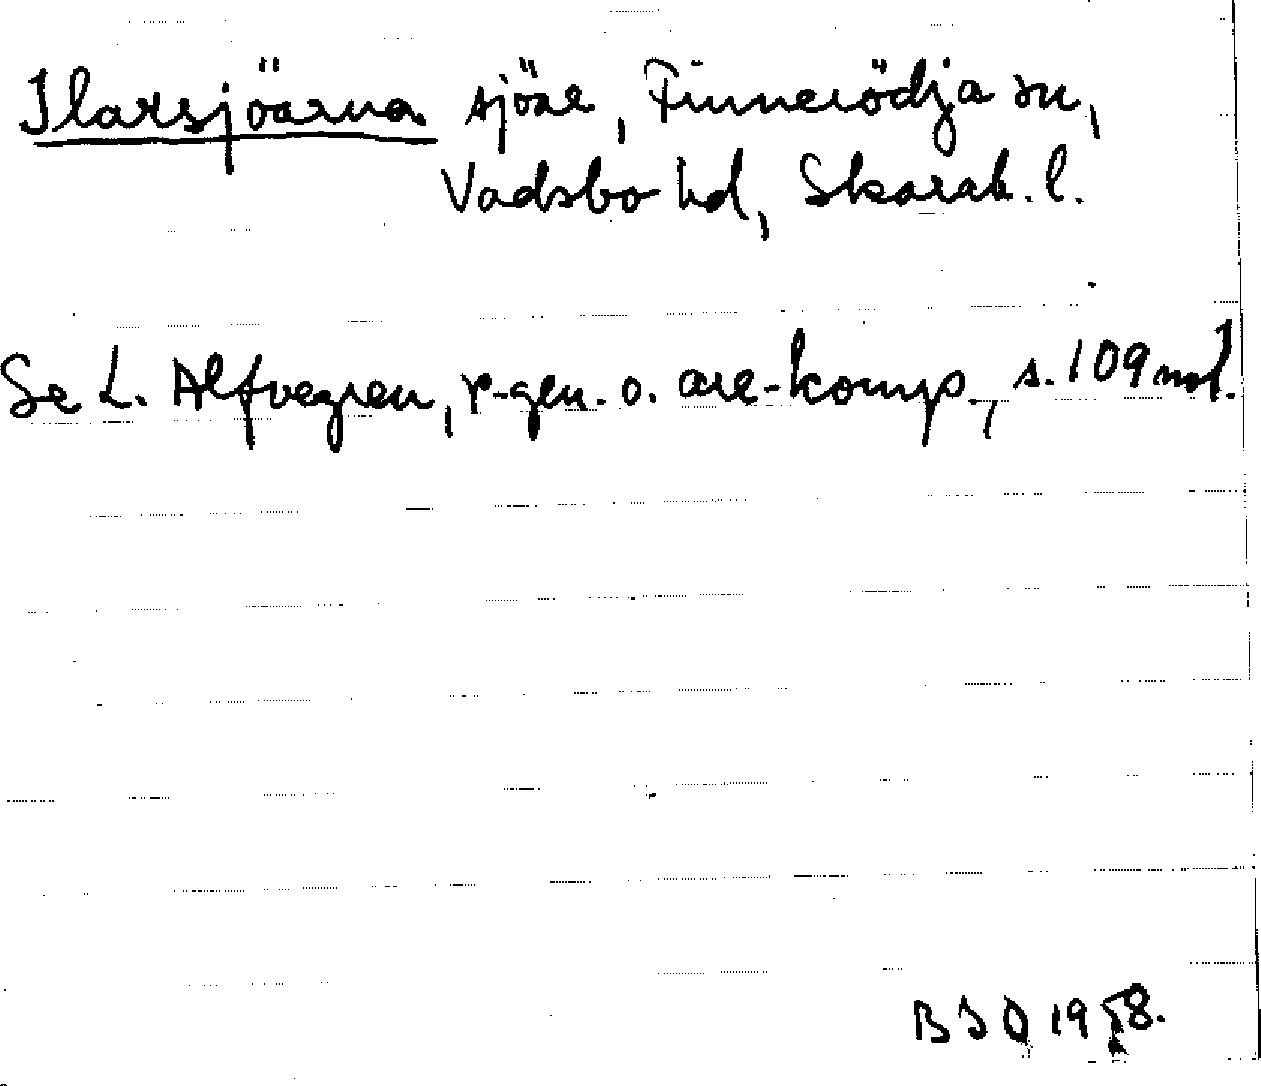 Ilarsjöarna sjöar, Finnerödja sn,
Vadsbo hd, Skarab. l.
Se L. Alfvegren, r-gen. o. are-komp., s. 109 not.
BSD 1958.